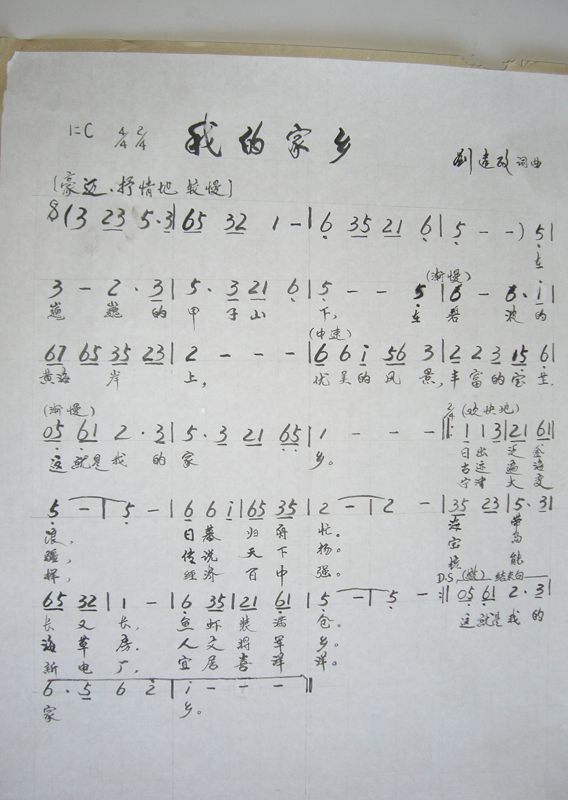 我的家乡
1=C 4/4 2/4
刘建改 词曲
[豪迈、抒情地 较慢]
(3 23 5·3|65 32 1 -|6 35 21 6|5 - -) 5|
在
(渐慢)
3 - 2·3|5·3 21 6|5 - - 5|6 - 6·i|
巍 巍 的 甲 子 山 下, 在 碧 波 的
(中速)
67 65 35 23|2 - - -|6 6 i 56 3|2 2 3 15 6|
黄海 岸 上, 优美的风 景,丰富的宝
(渐慢) 2/4 (欢快地)
05 61 2·3|5·3 21 65|1 - - -‖: 1 1 3|21 61|
这就是我 的 家 乡。 日出
古 遍
大
5 -|5 -|6 6 i|65 35|2 -|2 -|35 23|5·31|
浪, 日暮 归 忙。
疆, 传说 天下 扬。 宝 岛
样, 经济 百 中 强。 核 能
D.S. 结束句
65 32|1 -|6 35|21 61|5 -|5 -:‖05 61 2·3|
长 又 长, 鱼虾 装满 仓。 这就是我的
海 草 房. 人文 将军 乡。
新 电 厂, 宜居 喜洋 洋。
6·5 6 2|i - - -‖
家 乡。